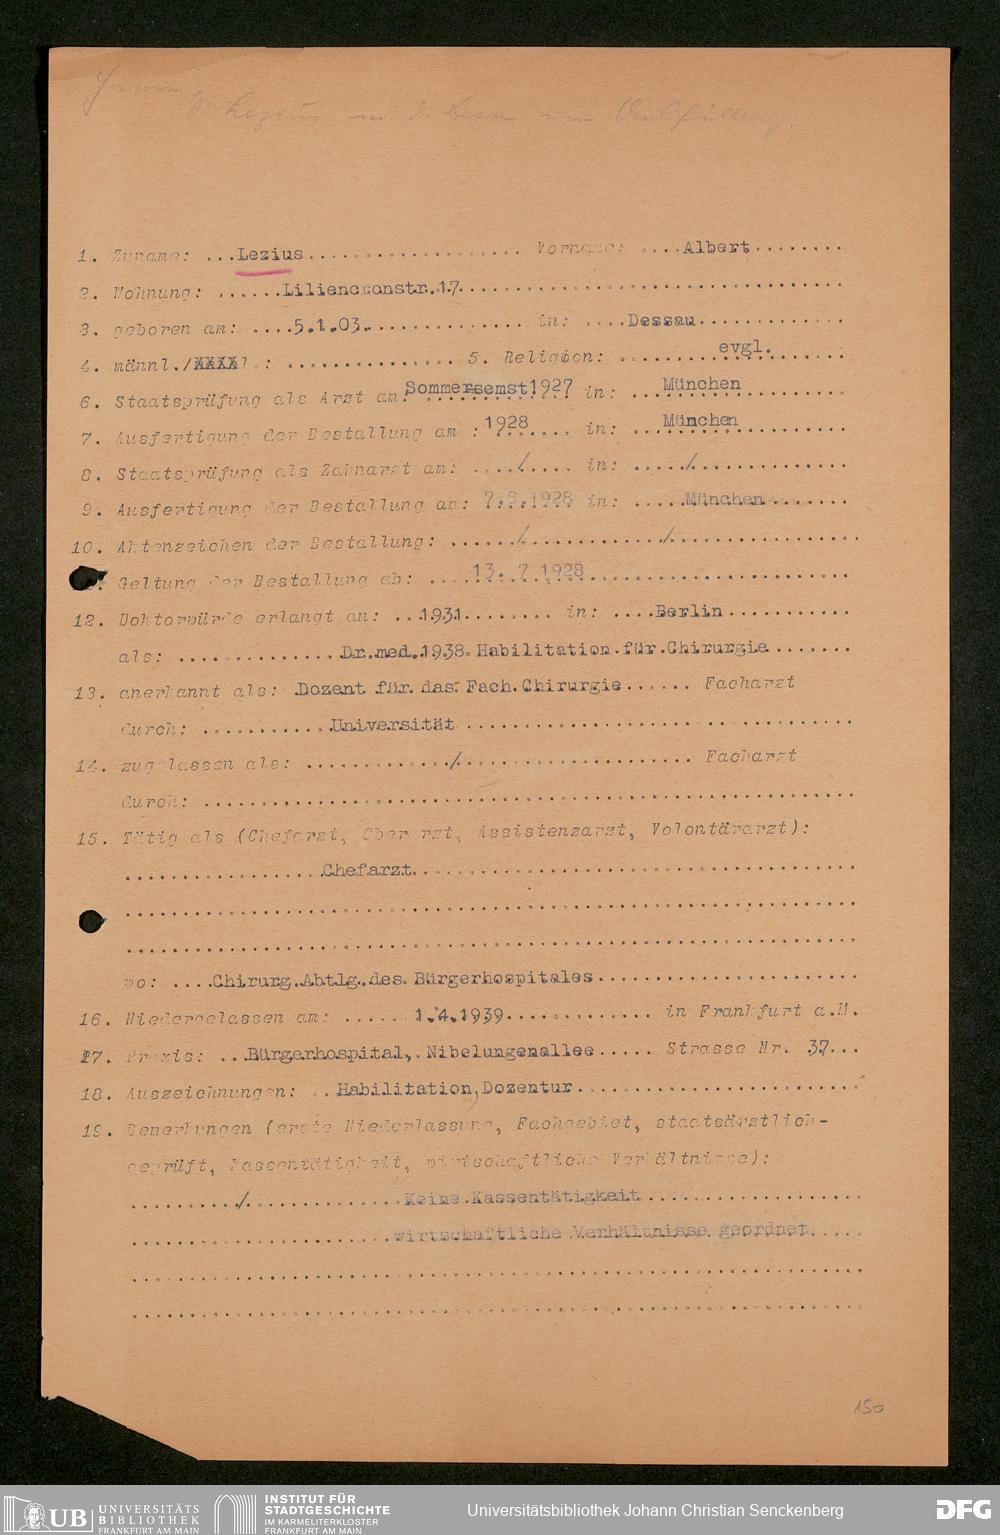 Herrn
Dr Lezius m. d. Bitte um Ausfüllung.
1. Zuname: ...Lezius.................... Vorname: ....Albert........
2. Wohnung: ......Liliencronstr.17....................................
3. geboren am: ....5.1.03................ in: ....Dessau.............
4. männl./XXXXl.: ................ 5. Religion: .........evgl........
6. Staatsprüfung als Arzt am: Sommersemst1927 in: ...München..........
7. Ausfertigung der Bestallung am : 1928..... in: ...München..........
8. Staatsprüfung als Zahnarzt am: ..../.... in: ...../...............
9. Ausfertigung der Bestallung am: 7.8.1928 in: .....München........
10. Aktenzeichen der Bestallung: ....../............../................
Geltung der Bestallung ab: ....13. 7.1928........................
12. Doktorwürde erlangt am: ...1931......... in: ....Berlin...........
als: ..............Dr.med.1938.Habilitation.für.Chirurgie........
13. anerkannt als: Dozent für das Fach Chirurgie...... Facharzt
durch: ............Universität..................................
14. zugelassen als: ............./...................... Facharzt
durch: .........................................................
15. Tätig als (Chefarzt, Oberarzt, Assistenzarzt, Volontärarzt):
.................Chefarzt.......................................
................................................................
................................................................
wo: ....Chirurg.Abtlg.des Bürgerhospitales......................
16. Niedergelassen am: ......1.4.1939............. in Frankfurt a.M.
17. Praxis: ..Bürgerhospital, Nibelungenallee..... Strasse Nr. 37...
18. Auszeichnungen: ..Habilitation,Dozentur.........................
19. Bemerkungen (erste Niederlassung, Fachgebiet, staatsärztlich-
geprüft, Kassentätigkeit, wirtschaftliche Verhältnisse):
.........../..............Keine Kassentätigkeit....................
.........................wirtschaftliche Verhältnisse geordnet.....
................................................................
................................................................
150
UB UNIVERSITÄTS
BIBLIOTHEK
FRANKFURT AM MAIN
INSTITUT FÜR
STADTGESCHICHTE
IM KARMELITERKLOSTER
FRANKFURT AM MAIN
Universitätsbibliothek Johann Christian Senckenberg
DFG